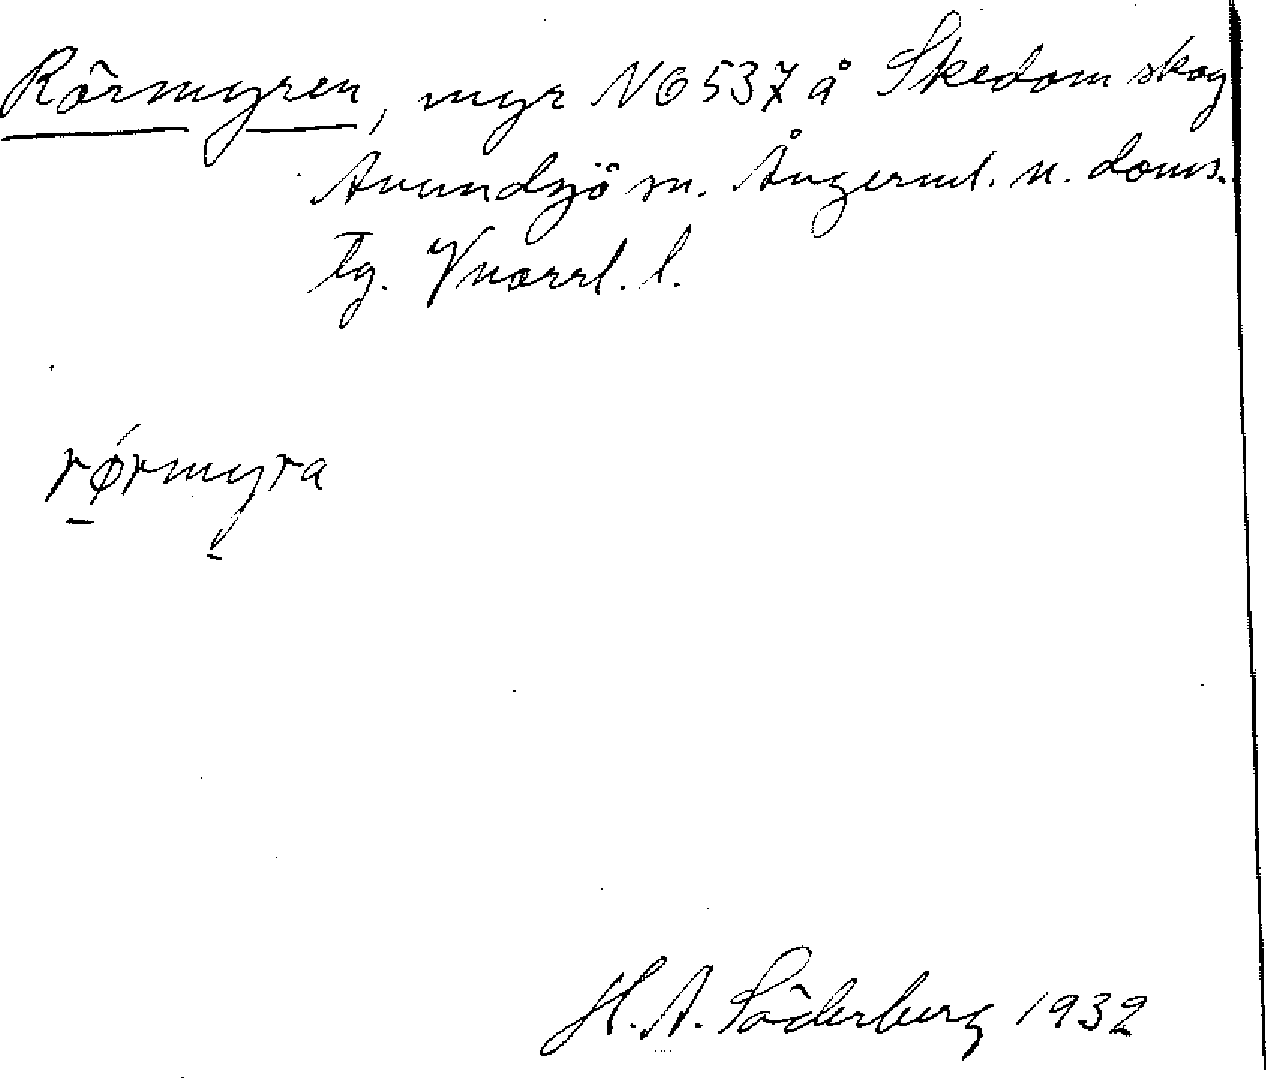 Rörmyren, myr N6537 å Skedom skog
Anundsjö sn. Ångerml. n. doms.
Tg. Vnorrl. l.
rørmyra
H. A. Söderberg 1932